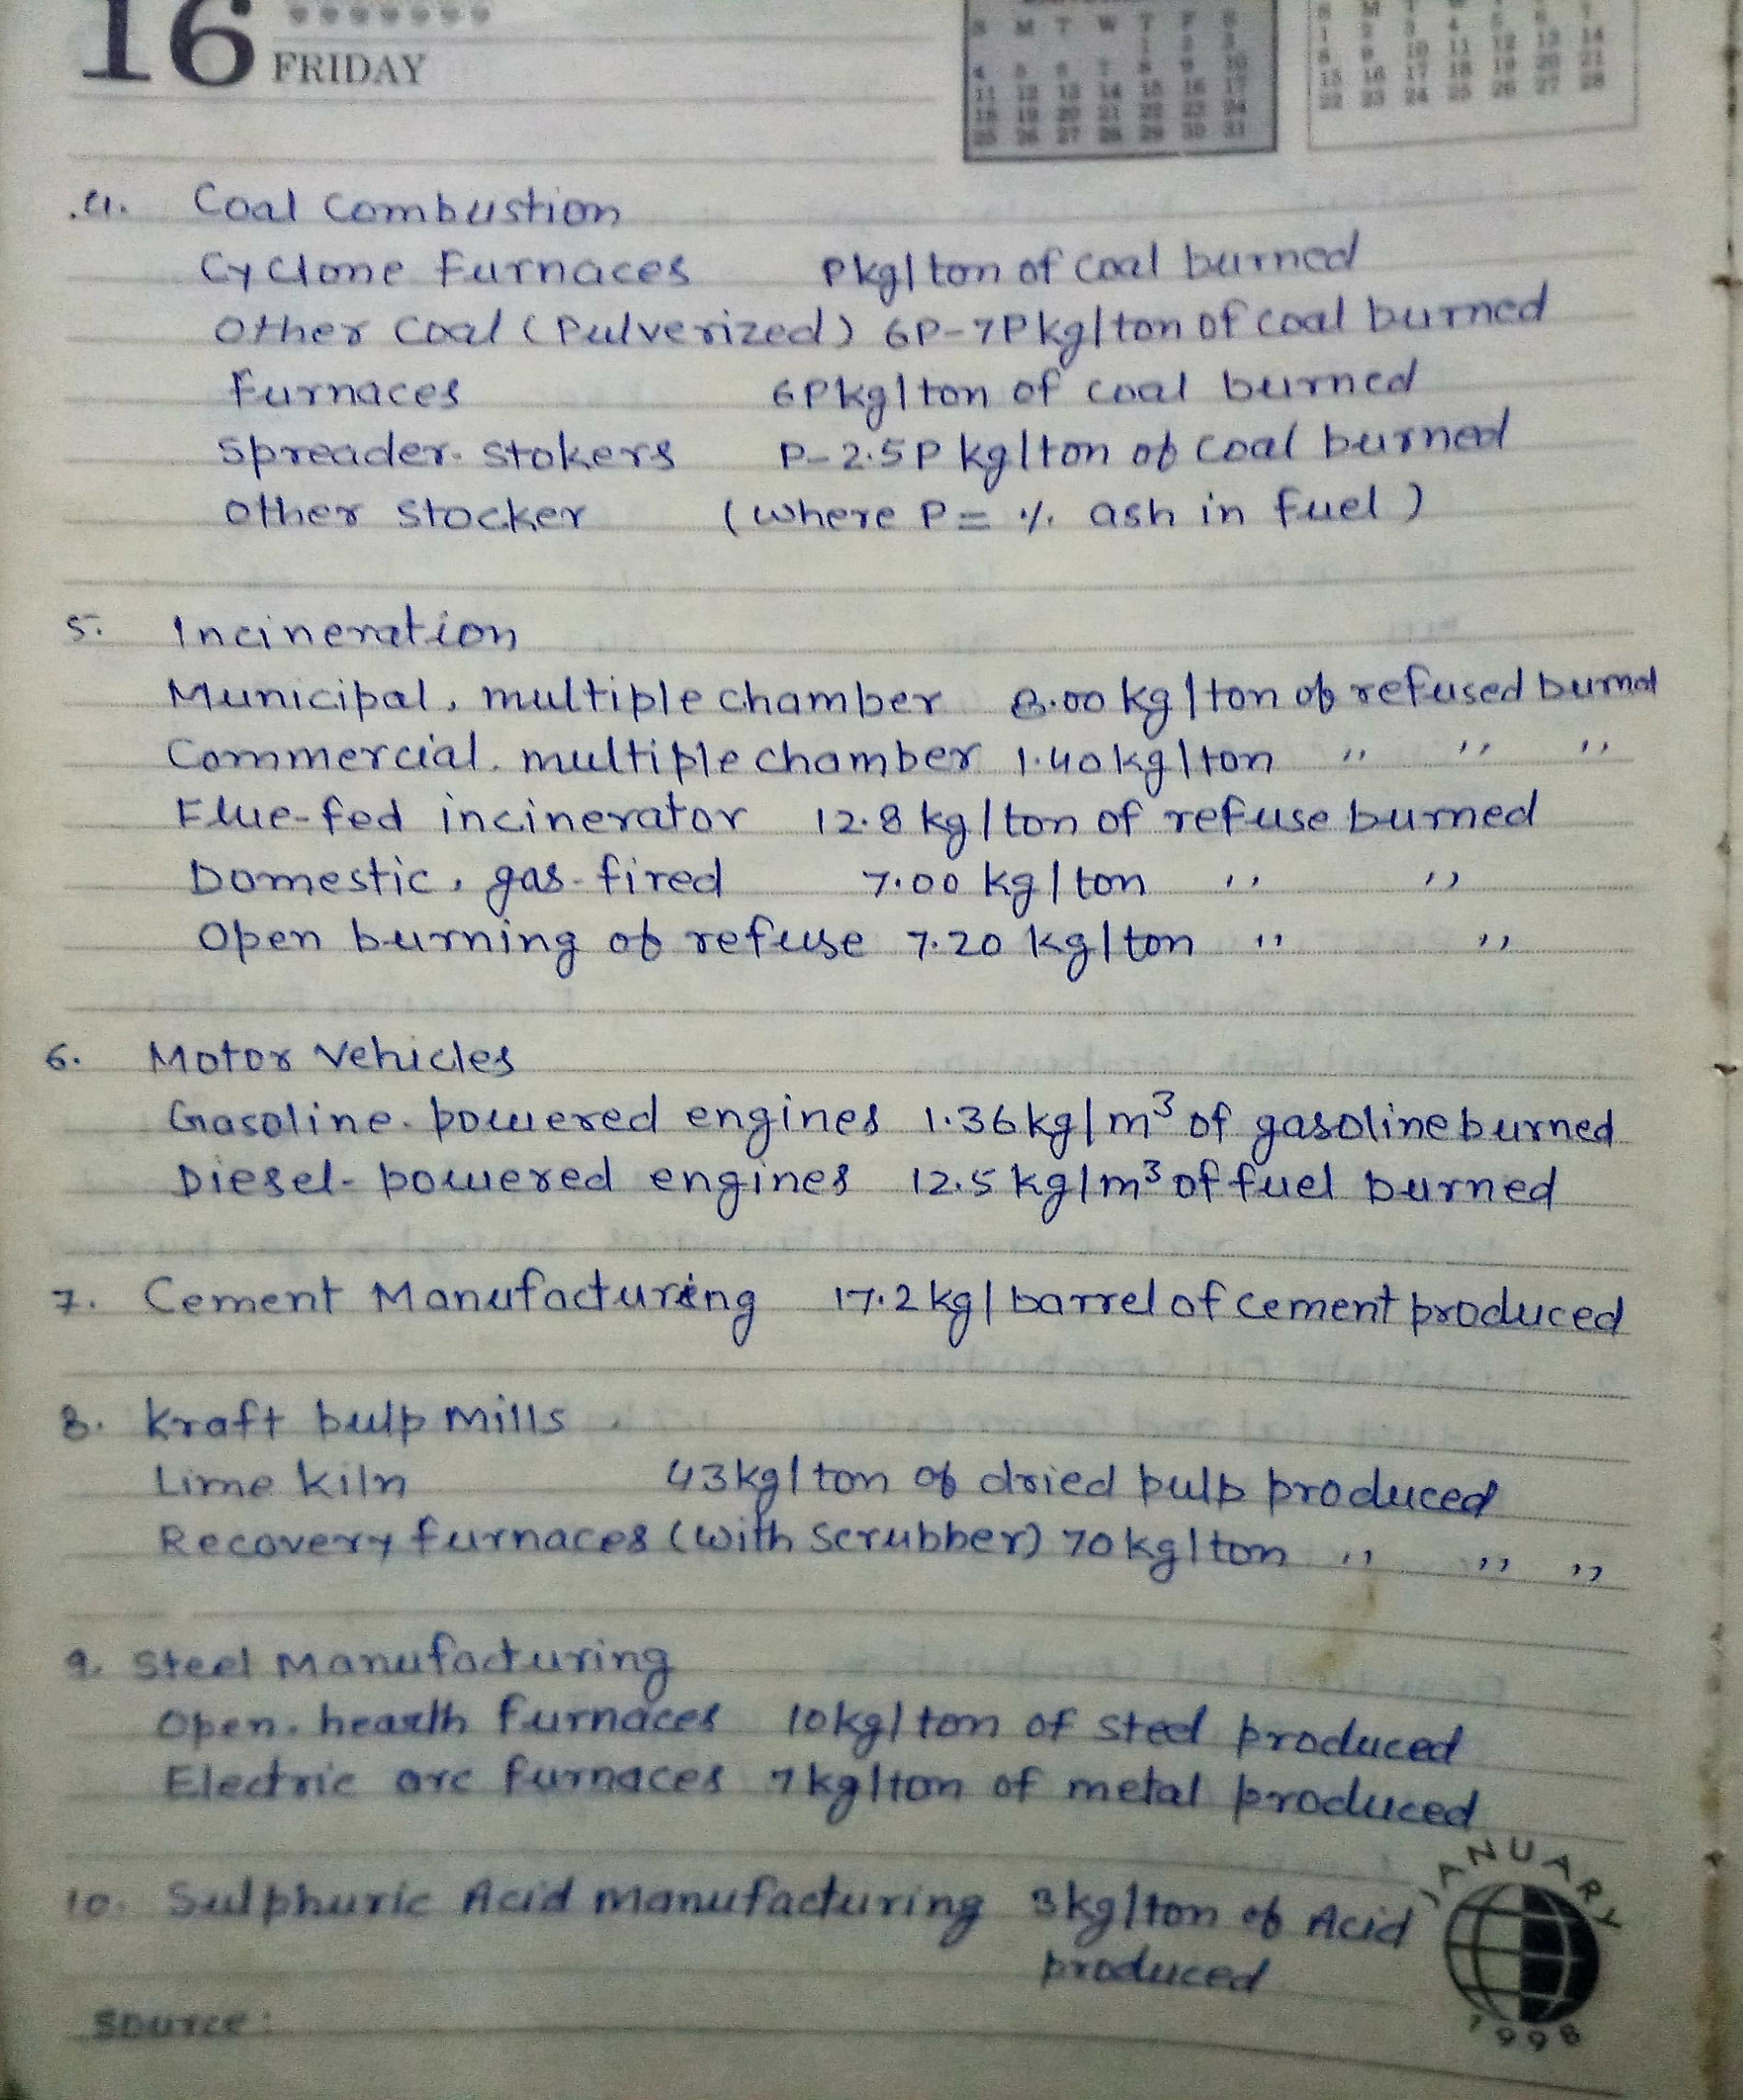 16
FRIDAY
S M T W T F S
1 2 3
4 5 6 7 8 9 10
11 12 13 14 15 16 17
18 19 20 21 22 23 24
25 26 27 28 29 30 31
1 2 3 4 5 6 7
8 9 10 11 12 13 14
15 16 17 18 19 20 21
22 23 24 25 26 27 28
4. Coal Combustion
Cyclone Furnaces Pkg/ton of coal burned
Other Coal (Pulverized) 6P-7P kg/ton of coal burned
Furnaces 6Pkg/ton of coal burned
Spreader-Stokers P-2.5P kg/ton of coal burned
Other Stocker (where P = % ash in fuel)
5. Incineration
Municipal, multiple chamber 8.00 kg/ton of refused burned
Commercial, multiple chamber 1.40 kg/ton '' '' ''
Flue-fed incinerator 12.8 kg/ton of refuse burned
Domestic, gas-fired 7.00 kg/ton '' ''
Open burning of refuse 7.20 kg/ton '' ''
6. Motor Vehicles
Gasoline-powered engines 1.36kg/m³ of gasoline burned
Diesel-powered engines 12.5 kg/m³ of fuel burned
7. Cement Manufacturing 17.2 kg/barrel of cement produced
8. Kraft bulp Mills
Lime kiln 43kg/ton of dried bulp produced
Recovery furnaces (with Scrubber) 70kg/ton '' '' ''
9. Steel Manufacturing
Open-hearth furnaces 10kg/ton of steel produced
Electric arc furnaces 7kg/ton of metal produced
10. Sulphuric Acid Manufacturing 3kg/ton of Acid
produced
JANUARY
1998
Source: